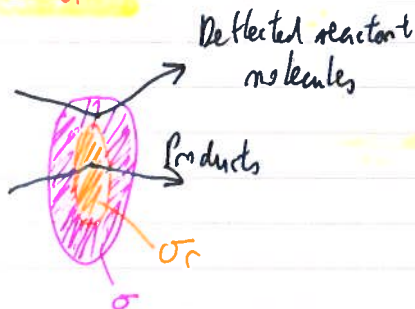 Deflected reactant
molecules
Products
σr
σ